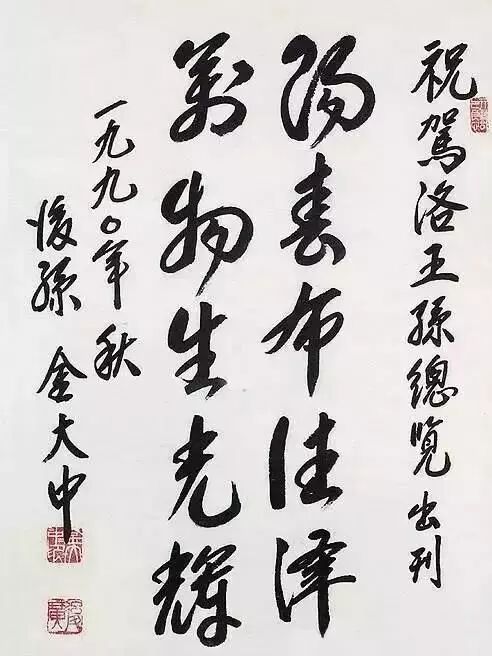 祝駕洛王孫總覽出刊
陽春布佳澤
萬物生光輝
一九九〇年 秋
後孫 金大中